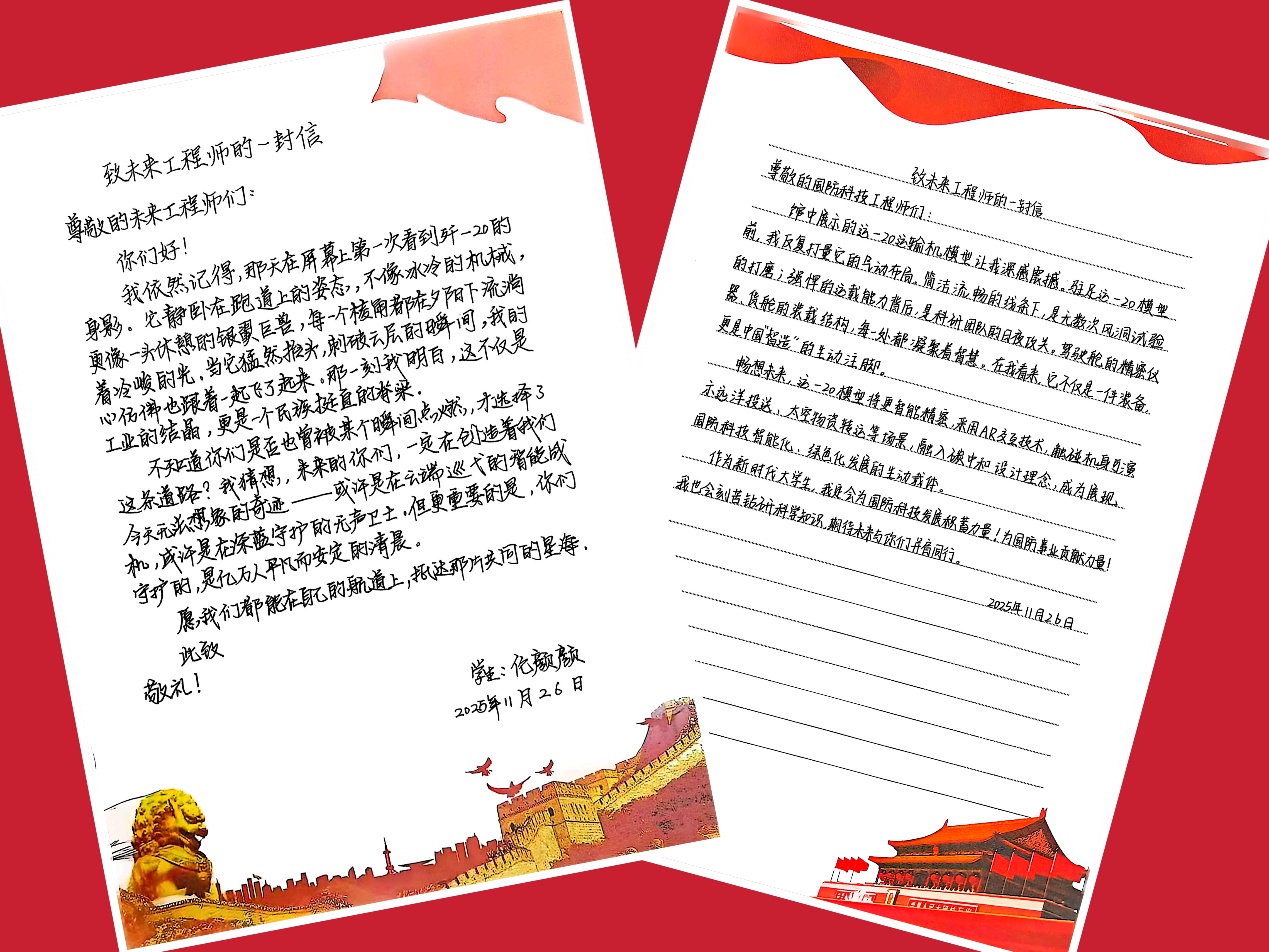 致未来工程师的一封信
尊敬的未来工程师们：
你们好！
我依然记得，那天在屏幕上第一次看到歼-20的
身影。它静卧在跑道上的姿态，不像冰冷的机械，
更像一头休憩的银翼巨兽，每一个棱角都在夕阳下流淌
着冷峻的光。当它猛然抬头，刺破云层的瞬间，我的
心仿佛也跟着一起飞了起来。那一刻我明白，这不仅是
工业的结晶，更是一个民族挺直的脊梁。
不知道你们是否也曾被某个瞬间点燃，才选择了
这条道路？我猜想，未来的你们，一定在创造着我们
今天无法想象的奇迹——或许是在云端巡弋的智能战
机，或许是在深蓝守护的无声卫士，但更重要的是，你们
守护的，是亿万人平凡而安定的清晨。
愿我们都能在自己的航道上，抵达那片共同的星海。
此致
敬礼！
学生：伦颜颜
2025年11月26日
致未来工程师的一封信
尊敬的国防科技工程师们：
馆中展示的运-20运输机模型让我深感震撼。驻足运-20模型
前，我反复打量它的气动布局。简洁流畅的线条下，是无数次风洞试验
的打磨；强悍的运载能力背后，是科研团队的日夜攻关。驾驶舱的精密仪
器、货舱的装载结构，每一处都凝聚着智慧。在我看来，它不仅是一件装备，
更是中国“智造”的生动注脚。
畅想未来，运-20模型将更智能精密，采用AR交互技术，触碰机翼可演
示远洋投送、太空物资转运等场景，融入碳中和设计理念，成为展现
国防科技智能化、绿色化发展的生动载体。
作为新时代大学生，我定会为国防科技发展积蓄力量！为国防事业贡献力量！
我也会刻苦钻研科学知识，期待未来与你们并肩同行。
2025年11月26日